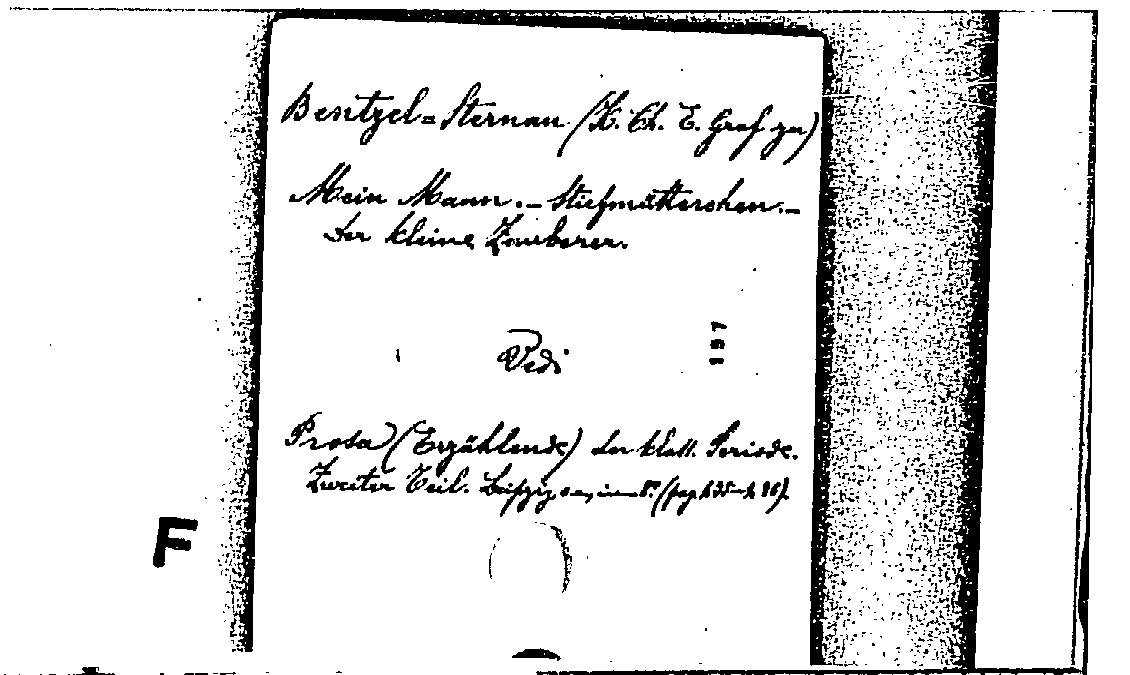 Bentzel=Sternau (K. Ch. E. Graf zu)
Mein Mann. – Stiefmütterchen. –
Der kleine Zauberer.
Vedi
197
Prosa (Erzählende) der klass. Periode.
Zweiter Teil. Leipzig in 8º (pag.
F